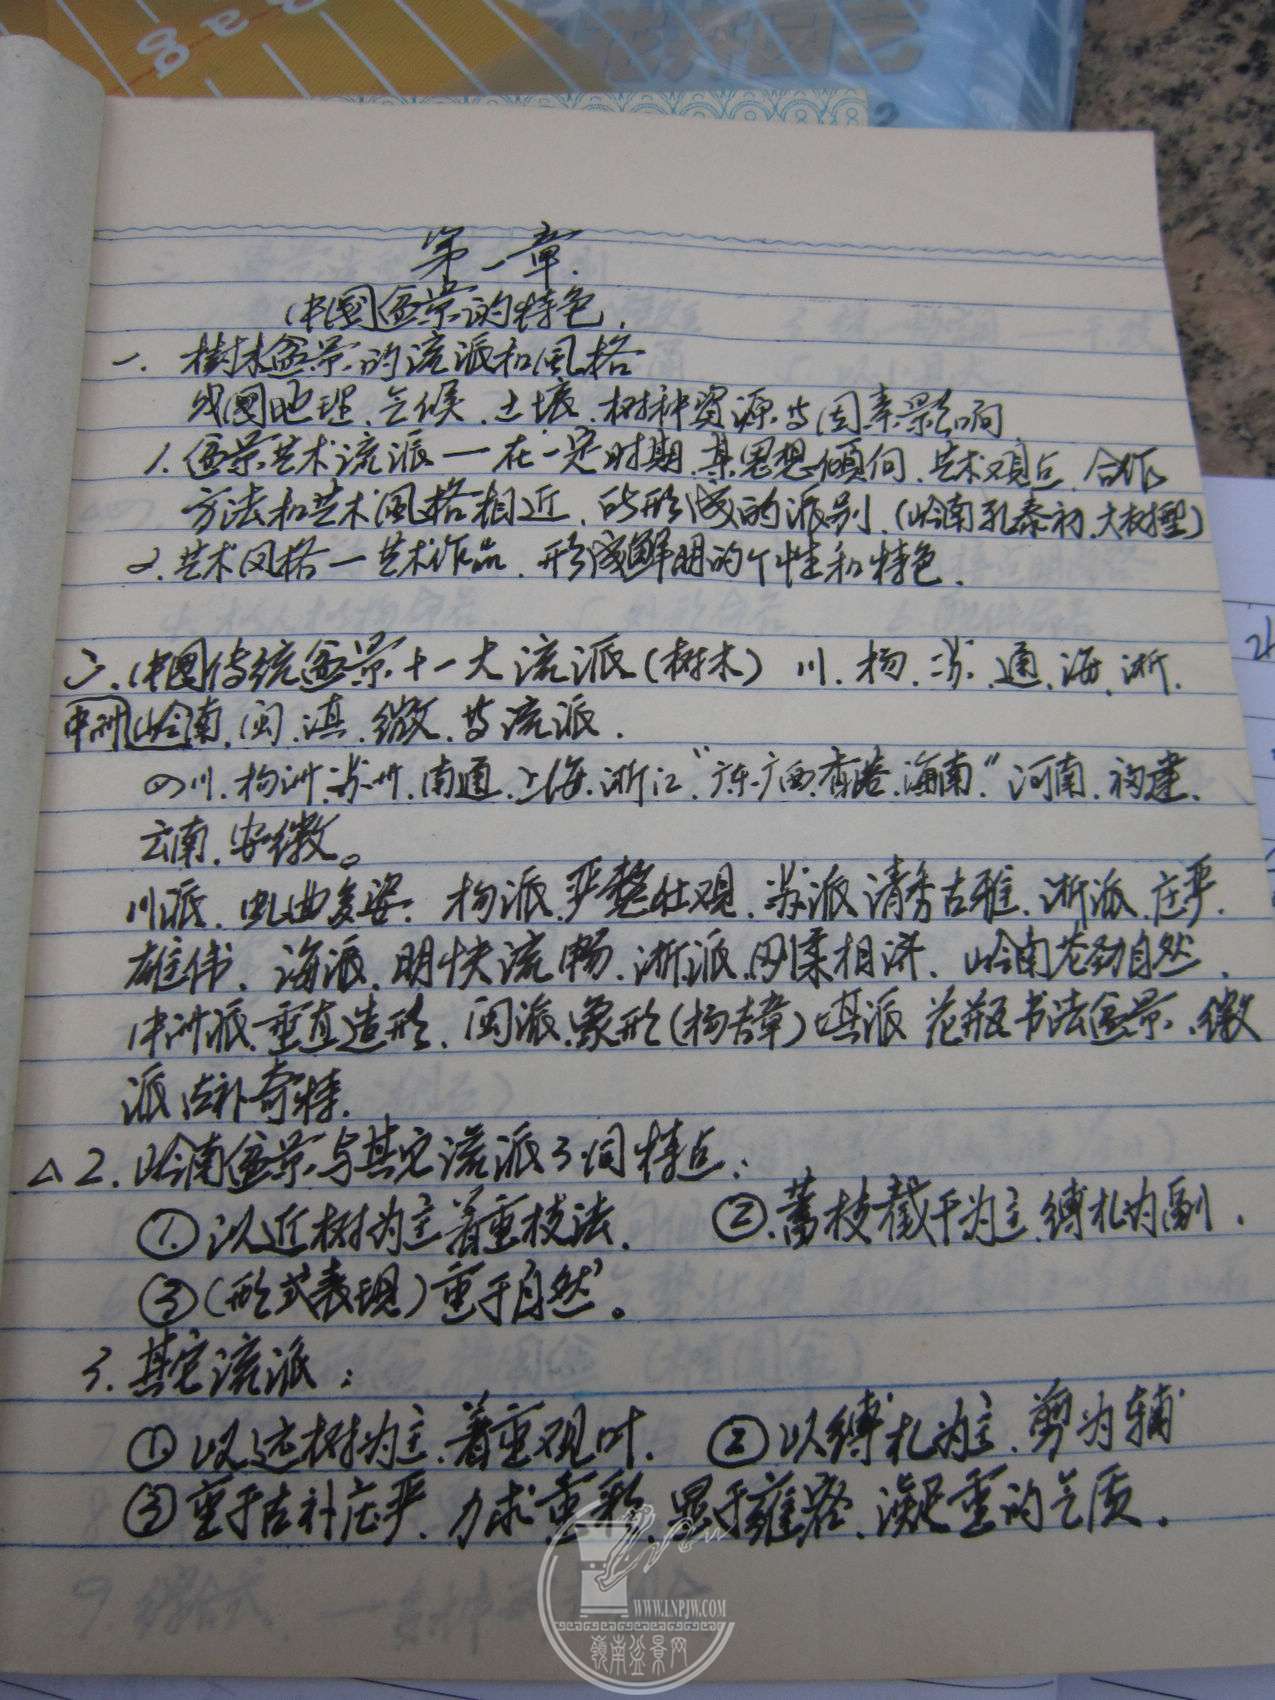 第一章.
中国盆景的特色.
一. 樹木盆景的流派和風格
我国地理.气候.土壤.树种资源等因素影响
1.盆景艺术流派一在一定时期.某思想倾向.艺术观点.合作
方法和艺术風格相近.的形成的派别.(岭南孔泰初.大树型)
2.艺术风格一艺术作品.形成鲜明的个性和特色.
二.中国传统盆景十一大流派(树木) 川.杨.苏.通.海.浙.
中州岭南.闽.滇.徽.等流派.
四川.杨州.苏州.南通.上海.浙江"广东.广西.香港.海南"河南.福建.
云南.安徽。
川派.虬曲多姿.杨派.严整壮观.苏派清秀古雅.浙派.庄严.
雄伟.海派.明快流畅.浙派.刚柔相济.岭南苍劲自然.
中州派.垂直造形.闽派.象形(杨吉章)滇派花瓶书法盆景.徽
派古朴奇特.
△2.岭南盆景与其它流派之间特点:
①.以近树为主着重枝法. ②.蓄枝截干为主.缚扎为副.
③(形式表现)重于自然。
3.其它流派:
①.以远树为主.着重观叶. ②以缚扎为主.剪为辅
③重于古朴庄严.力求重彩.显于雍容.凝重的气质.
WWW.LNPJW.COM
嶺南盆景网